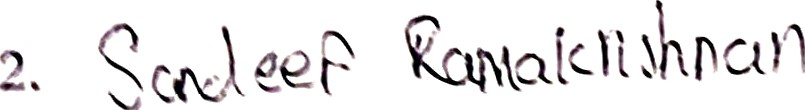 2. Sandeep Ramakrishnan